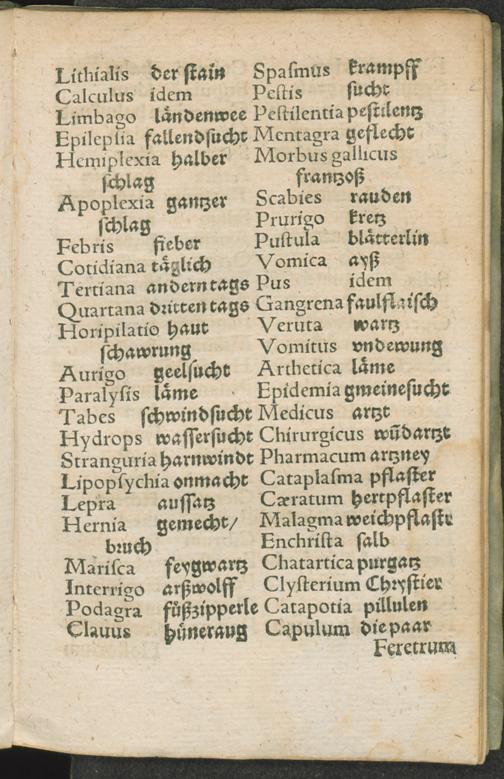 Lithialis der stain
Calculus idem
Limbago låndenwee
Epilepſia fallendsucht
Hemiplexia halber
schlag
Apoplexia gantzer
schlag
Febris fieber
Cotidiana tåglich
Tertiana andern tags
Quartana dritten tags
Horipilatio haut
schawrung
Aurigo geelsucht
Paralyſis låme
Tabes schwindsucht
Hydrops wassersucht
Stranguria harnwindt
Lipopſychia onmacht
Lepra aussatz
Hernia gemecht/
bruch
Mariſca feygwartz
Interrigo arßwolff
Podagra fůßzipperle
Clauus hůneraug
Spaſmus krampff
Peſtis sucht
Peſtilentia pestilentz
Mentagra geflecht
Morbus gallicus
frantzoß
Scabies rauden
Prurigo kretz
Puſtula blåtterlin
Vomica ayß
Pus idem
Gangrena faulflaisch
Veruta wartz
Vomitus vndewung
Arthetica låme
Epidemia gmeinesucht
Medicus artzt
Chirurgicus wūdartzt
Pharmacum artzney
Cataplaſma pflaster
Cæratum hertpflaster
Malagma weichpflastr
Enchriſta salb
Chatartica purgatz
Clyſterium Chrystier
Catapotia pillulen
Capulum die paar
Feretrum